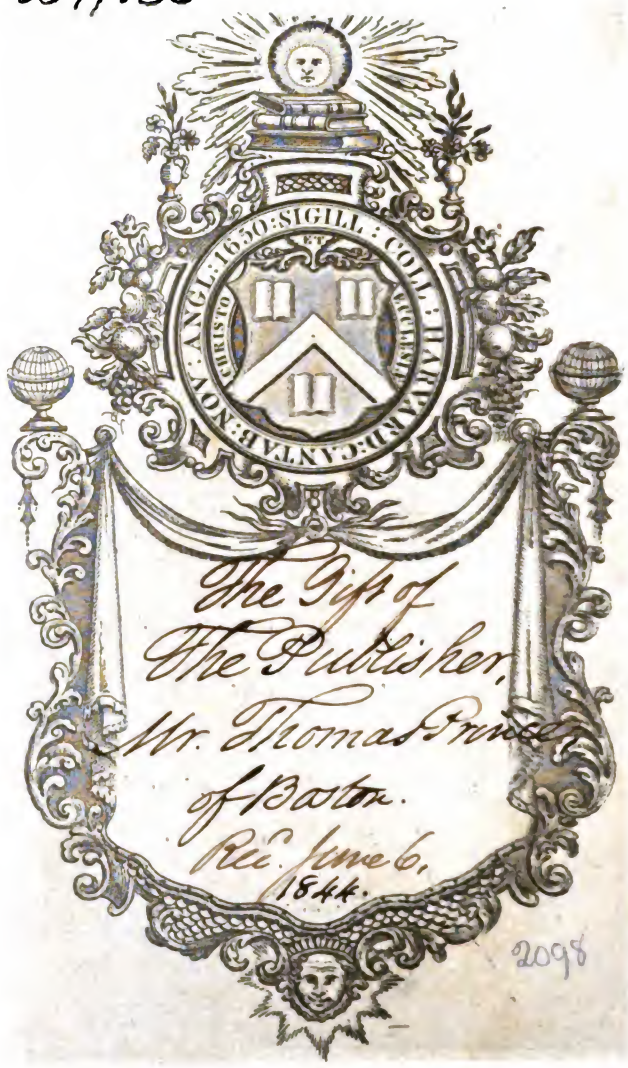 SIGILL : COLL : HARVARD : CANTAB : NOV : ANGL : 1650 :
CHRISTO
ET
ECCLESIÆ
The Gift of
The Publisher,
Mr. Thomas Prince
of Boston.
Rec. June 6,
1844.
2098